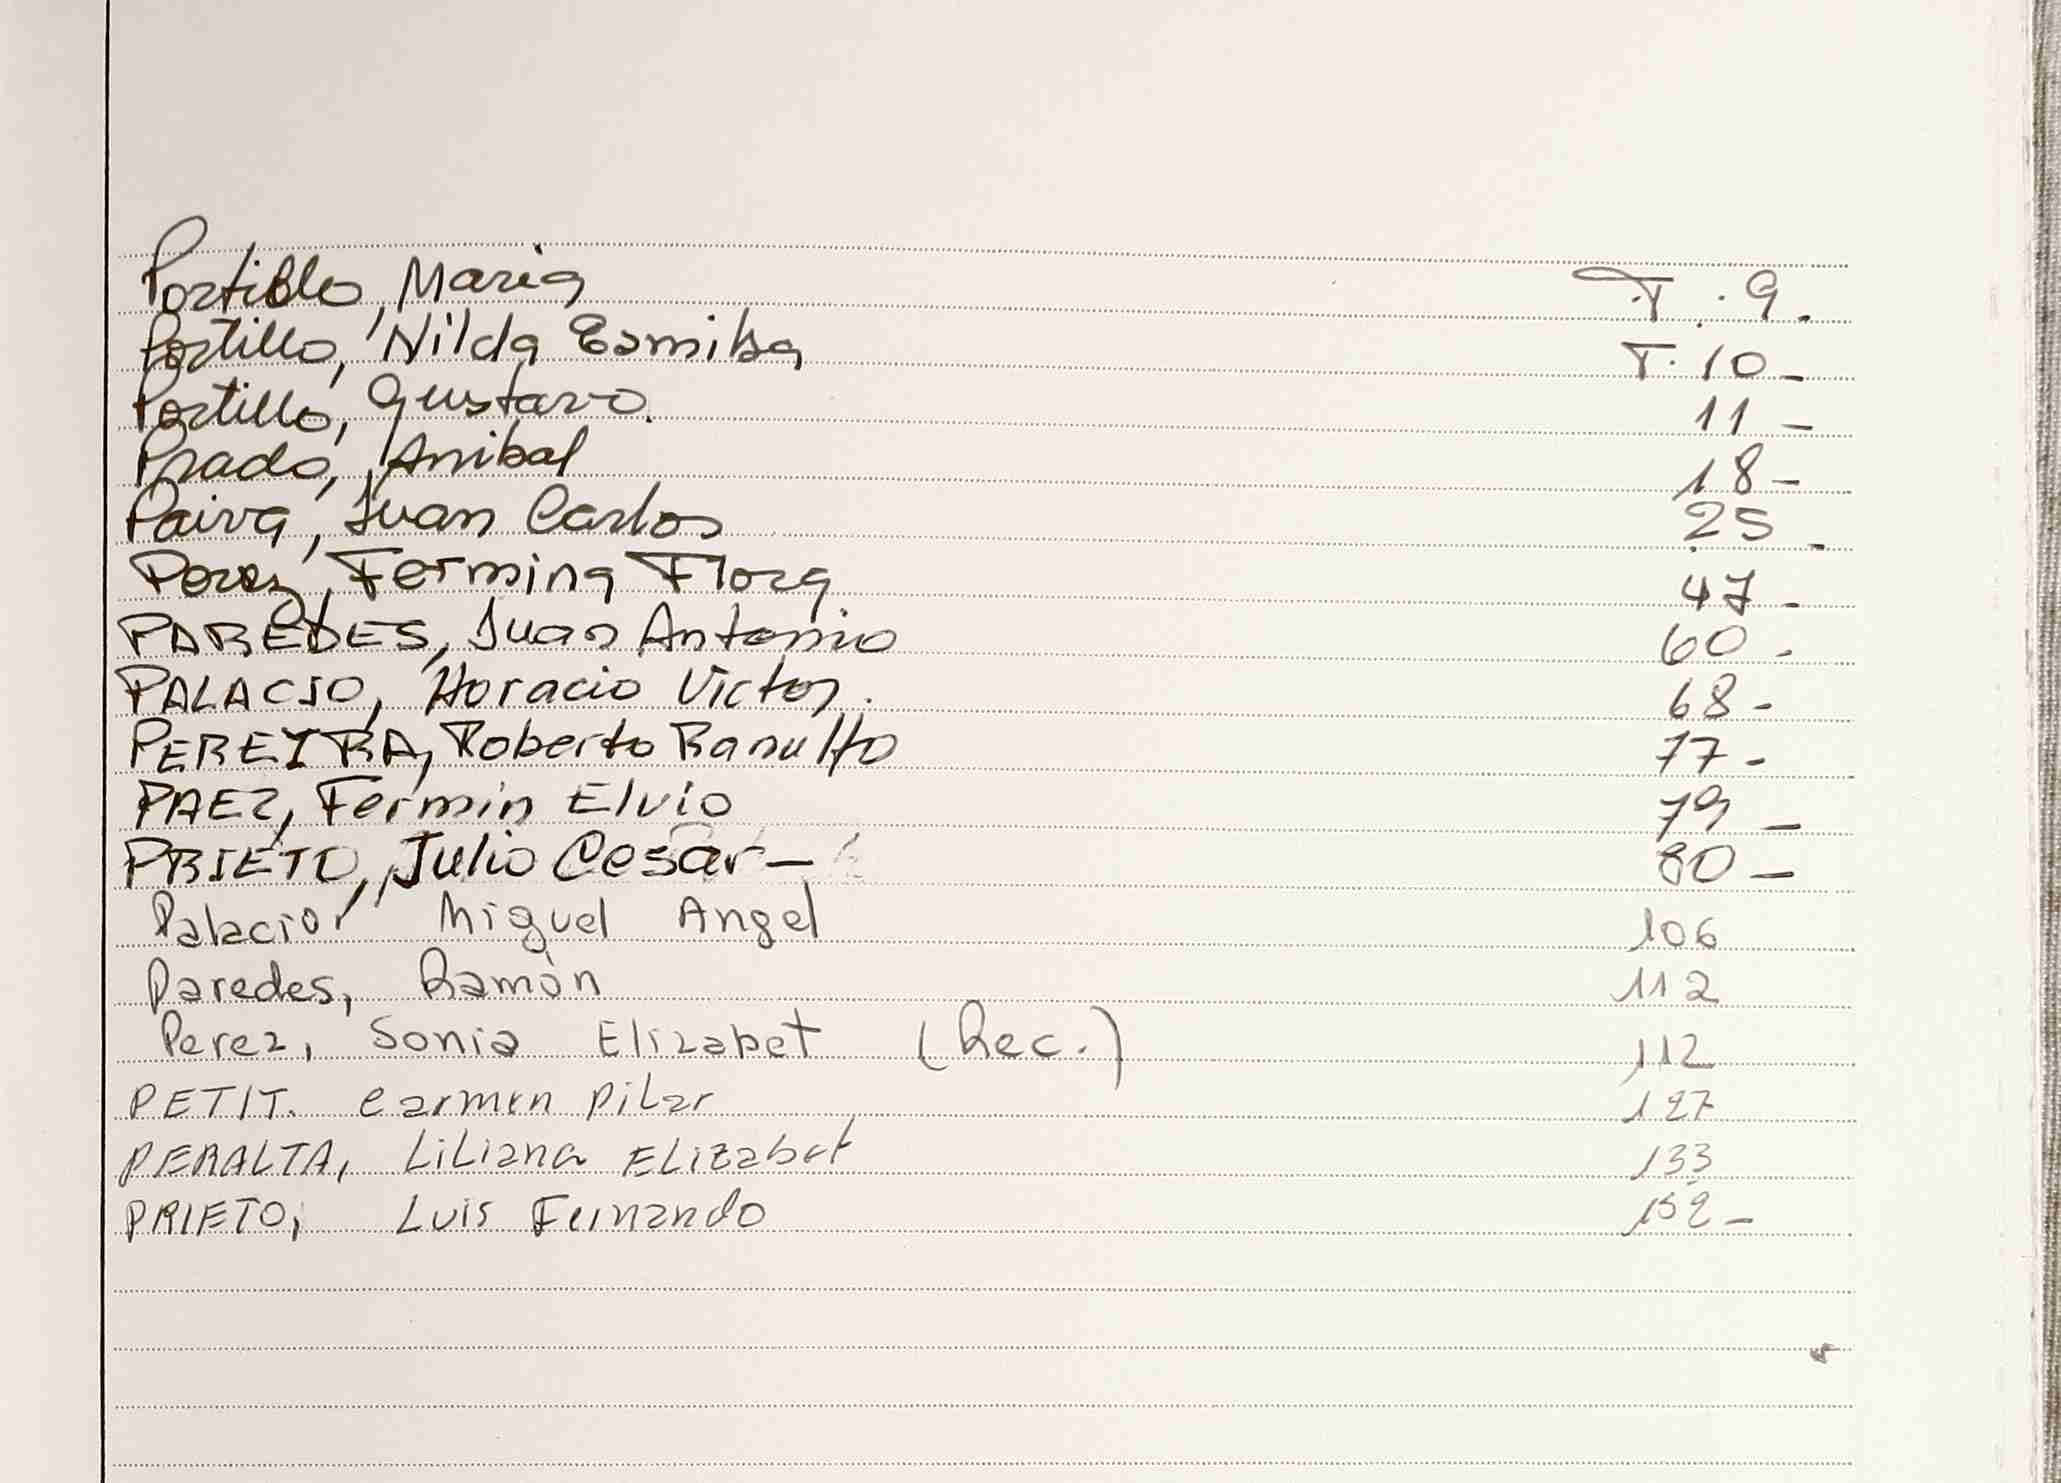 Portillo, Maria T. 9.
Portillo, Nilda Ramika T. 10 -
Portillo, Gustavo. 11 -
Prado, Anibal 18 -
Paiva, Juan Carlos 25 -
Perez, Fermina Flora 47 -
PAREDES, Juan Antonio 60 -
PALACIO, Horacio Victor. 68 -
PEREYRA, Roberto Ranulfo 77 -
PAEZ, Fermin Elvio 79 -
PRIETO, Julio Cesar - 80 -
Palacior Miguel Angel 106
Paredes, Ramón 112
Perez, Sonia Elizabet (Rec.) 112
PETIT. Carmen Pilar 127
PERALTA, Liliana Elizabet 133
PRIETO, Luis Fernando 152 -